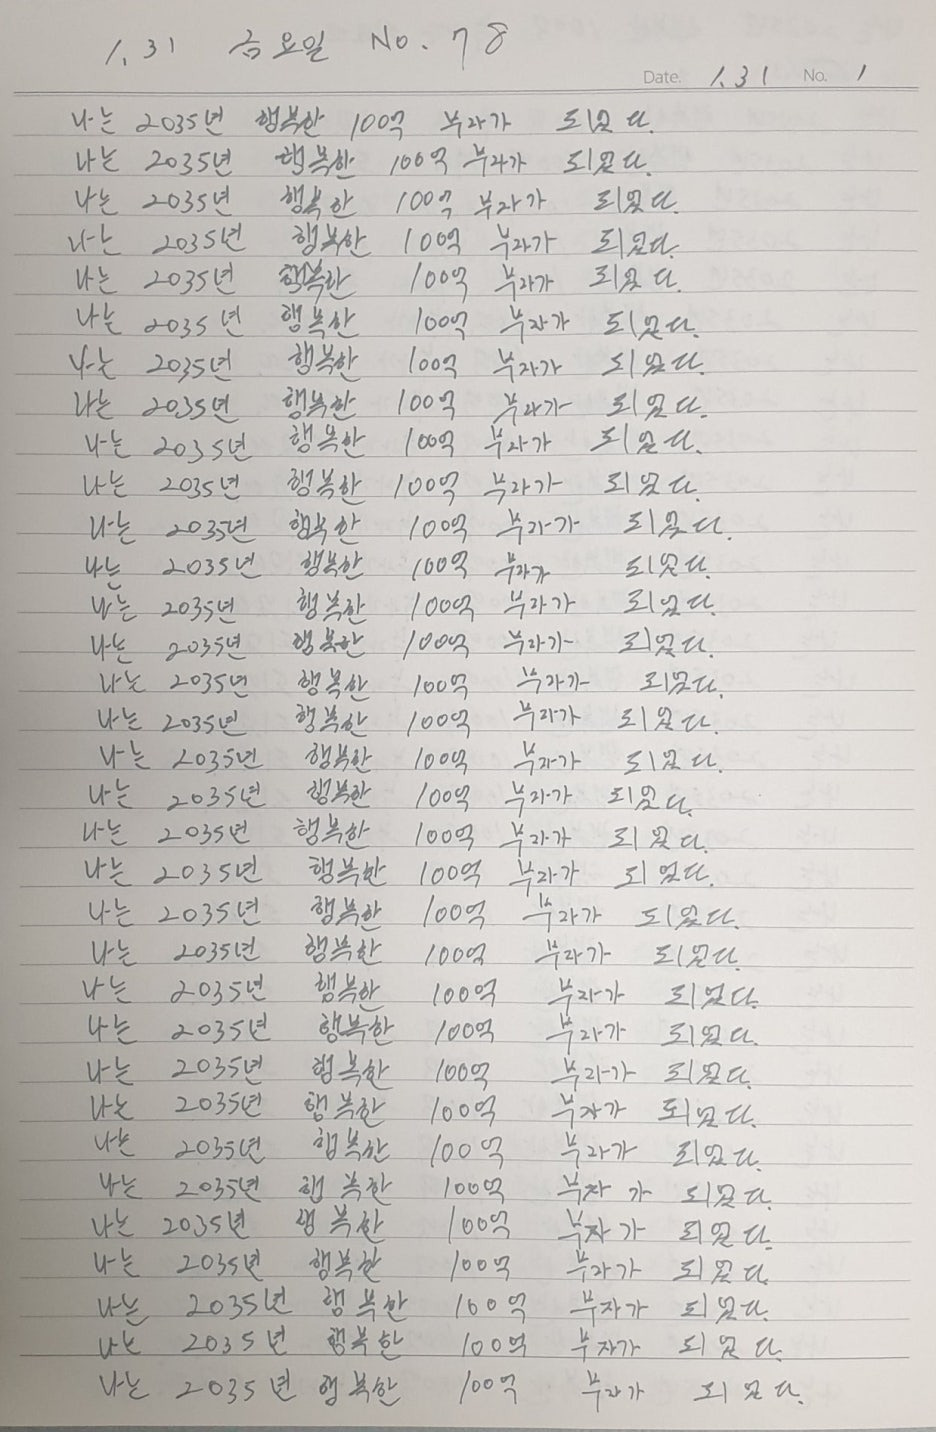 1.31 금요일 No. 78
Date. 1.31 No. 1
나는 2035년 행복한 100억 부자가 되었다.
나는 2035년 행복한 100억 부자가 되었다.
나는 2035년 행복한 100억 부자가 되었다.
나는 2035년 행복한 100억 부자가 되었다.
나는 2035년 행복한 100억 부자가 되었다.
나는 2035년 행복한 100억 부자가 되었다.
나는 2035년 행복한 100억 부자가 되었다.
나는 2035년 행복한 100억 부자가 되었다.
나는 2035년 행복한 100억 부자가 되었다.
나는 2035년 행복한 100억 부자가 되었다.
나는 2035년 행복한 100억 부자가 되었다.
나는 2035년 행복한 100억 부자가 되었다.
나는 2035년 행복한 100억 부자가 되었다.
나는 2035년 행복한 100억 부자가 되었다.
나는 2035년 행복한 100억 부자가 되었다.
나는 2035년 행복한 100억 부자가 되었다.
나는 2035년 행복한 100억 부자가 되었다.
나는 2035년 행복한 100억 부자가 되었다.
나는 2035년 행복한 100억 부자가 되었다.
나는 2035년 행복한 100억 부자가 되었다.
나는 2035년 행복한 100억 부자가 되었다.
나는 2035년 행복한 100억 부자가 되었다.
나는 2035년 행복한 100억 부자가 되었다.
나는 2035년 행복한 100억 부자가 되었다.
나는 2035년 행복한 100억 부자가 되었다.
나는 2035년 행복한 100억 부자가 되었다.
나는 2035년 행복한 100억 부자가 되었다.
나는 2035년 행복한 100억 부자가 되었다.
나는 2035년 행복한 100억 부자가 되었다.
나는 2035년 행복한 100억 부자가 되었다.
나는 2035년 행복한 100억 부자가 되었다.
나는 2035년 행복한 100억 부자가 되었다.
나는 2035년 행복한 100억 부자가 되었다.